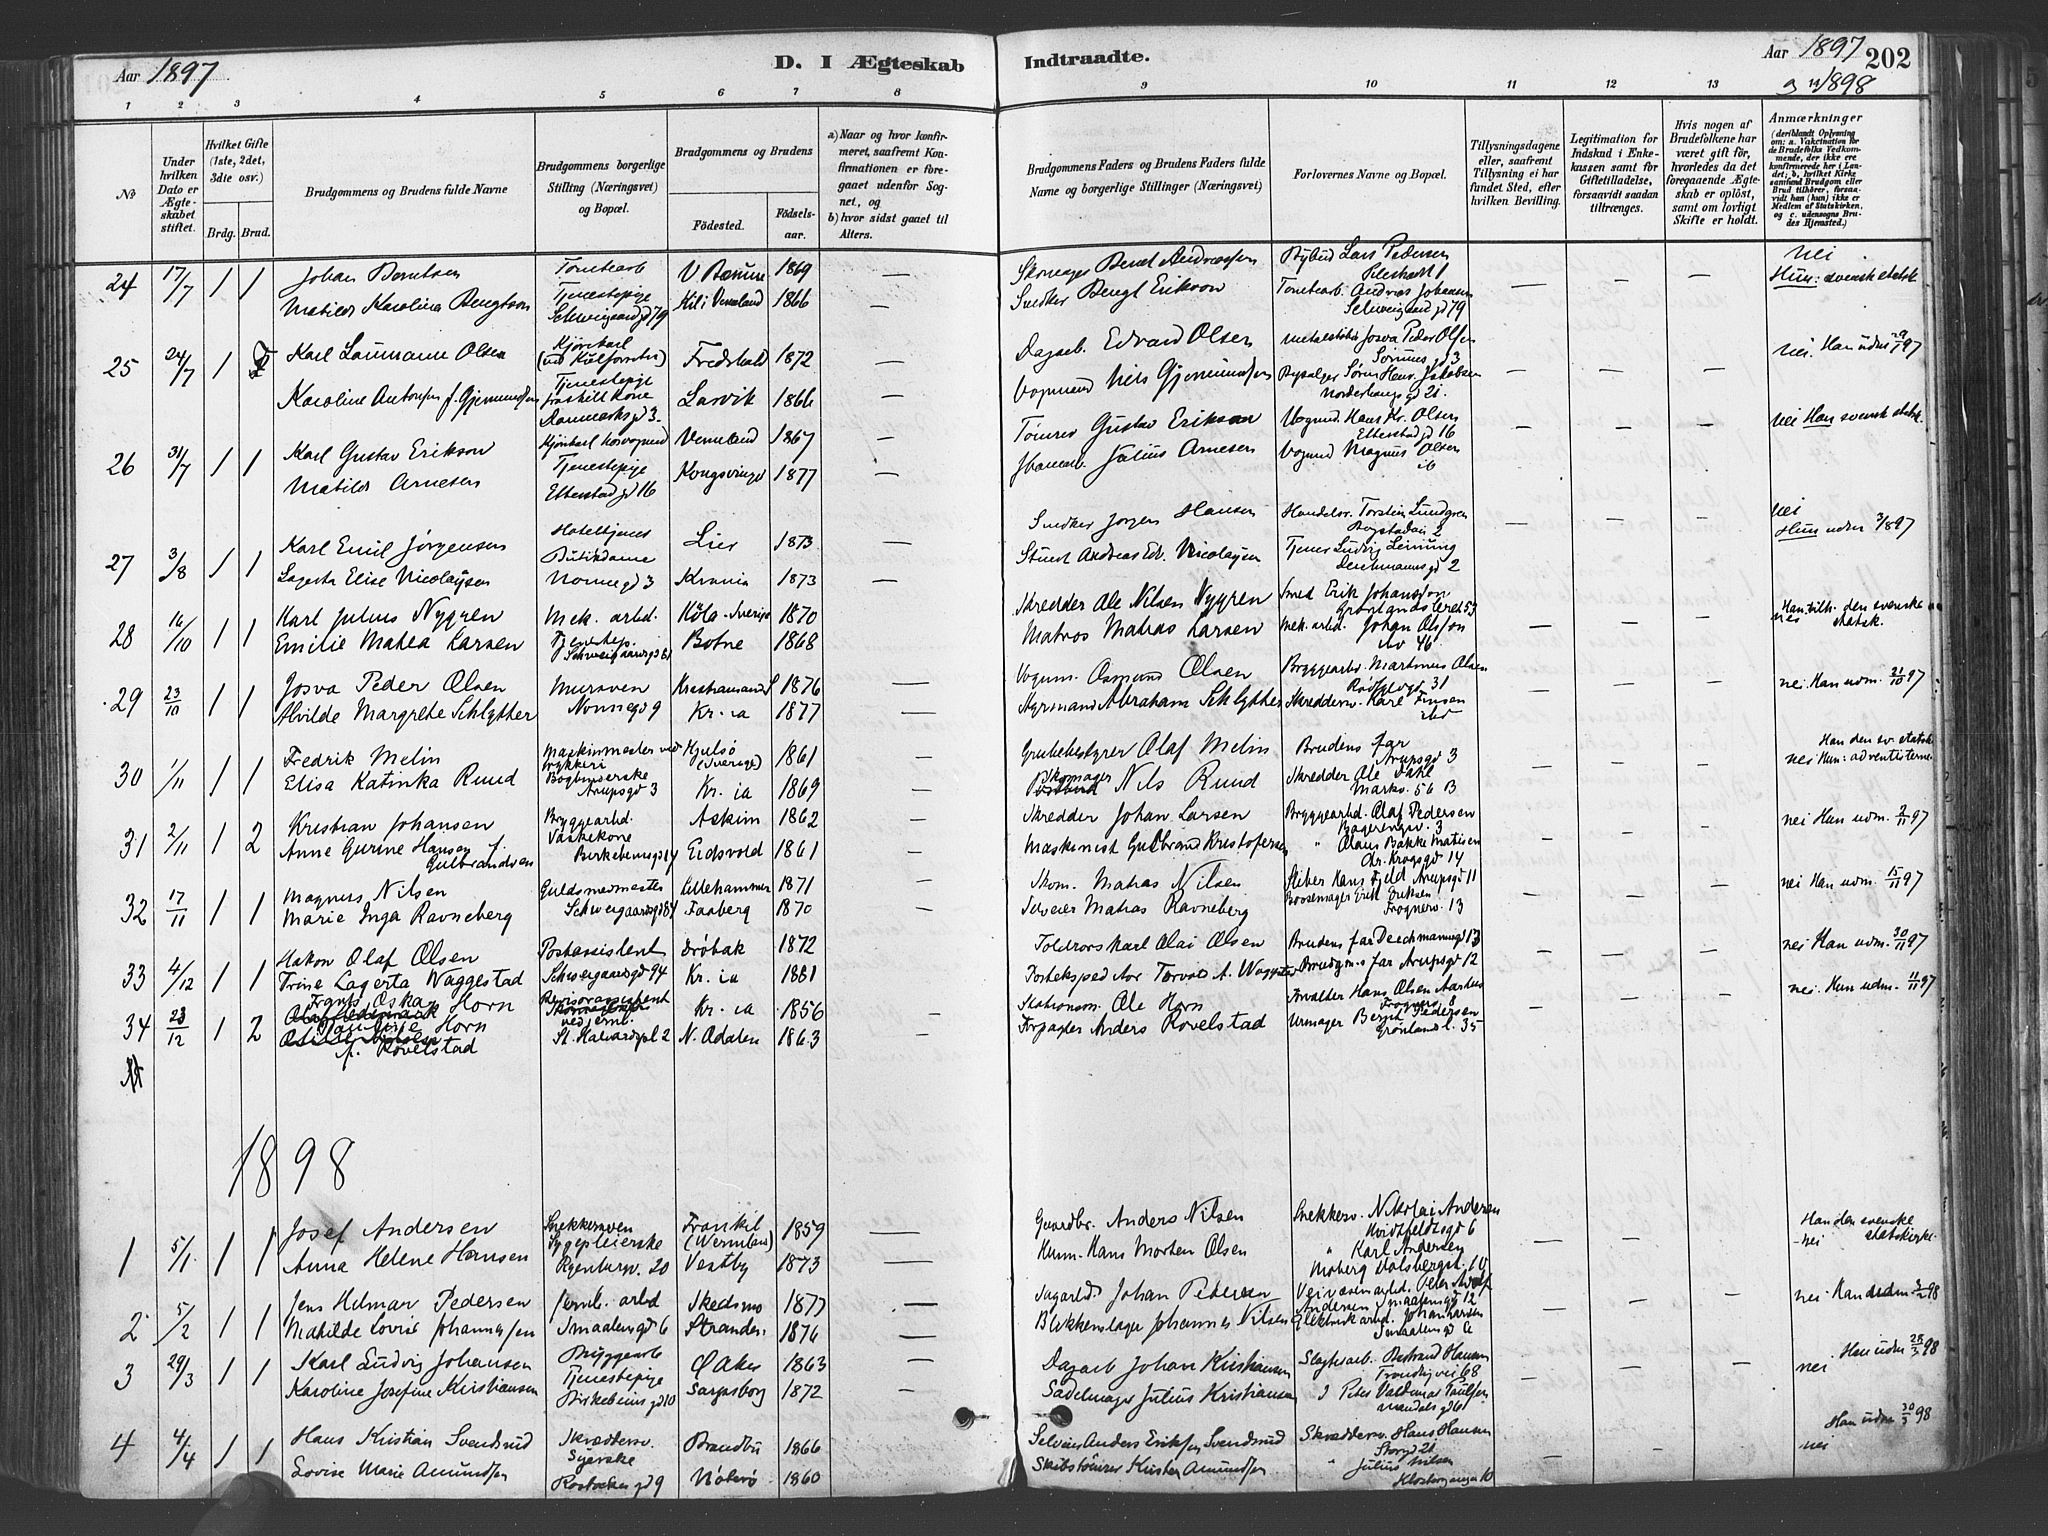 Aar 1897
D. I Ægteskab
Indtraadte.
Aar 1897
202
og 1898
1 2 3 4 5 6 7 8 9 10 11 12 13
No
Under hvilken Dato er Ægteskabet stiftet.
Hvilket Gifte (1ste, 2det, 3die osv.)
Brdg. Brud.
Brudgommens og Brudens fulde Navne
Brudgommens borgerlige Stilling (Næringsvei) og Bopæl.
Brudgommens og Brudens
Födested.
Födselsaar.
a) Naar og hvor konfirmeret, saafremt Konfirmationen er foregaaet udenfor Sognet, og
b) hvor sidst gaaet til Alters.
Brudgommens Faders og Brudens Faders fulde Navne og borgerlige Stillinger (Næringsvei)
Forlovernes Navne og Bopæl.
Tillysningsdagene eller, saafremt Tillysning ei har fundet Sted, efter hvilken Bevilling.
Legitimation for Indskud i Enkekassen samt for Giftetilladelse, forsaavidt saadan tiltrænges.
Hvis nogen af Brudefolkene har været gift før, hvorledes da det foregaaende Ægteskab er oplöst, samt om lovligt Skifte er holdt.
Anmærkninger
(deriblandt Oplysning om: a. Vakcination for de Brudefolks Vedkommende, der ikke ere konfirmerede her i Landet; b. hvilket Kirkesamfund Brudgom eller Brud tilhörer, forsaavidt han (hun) ikke er Medlem af Statskirken, og c. udensogns Brudes Hjemsted.)
24 17/7 1 1 Johan Berntsen V Bærum 1869 Skomager Bernt Andreassen Lars Pedersen nei
Matilde Karolina Bengtson Tjenestepige Schweigaardgd 79 Kil i Vermland 1866 Snedker Bengt Erikson Andreas Johansen Schweigaardgd 79 Hun: svensk statsk
25 24/7 1 Karl Laumann Olsen Kjørekarl Fredshald 1872 Dagarb. Edvard Olsen Josva Peder Olsen nei. Han udm 97
Karoline Antonsen f. Gjermundsen Tjenestepige fraskilt Kone Danmarksgd 3. Larvik 1866 Vognmand Nils Gjermundsen Søren Henr. Jakobsen
26 31/7 1 1 Karl Gustav Erikson Vermland 1867 Tømrer Gustav Erikson Vognmd Hans Kr. Olsen Etterstadgd 16 nei Han svensk statsk.
Matilde Arnesen Tjenestepige Etterstadgd 16 Kongsvinger 1877 Julius Arnesen Vognmd Magnus Olsen ib
27 3/8 1 1 Karl Emil Jørgensen Hoteltjener Lier 1873 Snedker Jørgen Hansen Torstein Lundgren Bogstadvei 2 nei
Lagerta Elise Nicolaysen Butikdame Nornegd 3 Kr.ania 1873 Andreas Ed. Nicolaysen Tjener Ludvig Leinung Deichmannsgd 2 Hun udm 3/8 97
28 16/10 1 1 Karl Julius Nygren Mek. arbd. Köla - Sverige 1870 Skredder Ole Nilsen Nygren Smed Erik Johansson Grønlandsleret 53 Han tilh. den svenske statsk.
Emilie Mathea Larsen Tjenstep. Schweigaardsgd 81 Botne 1868 Matros Matias Larsen Mek. arbd. Johan Olsson ibd 46 nei
29 23/10 1 1 Josva Peder Olsen Mursven Kristiansand S 1876 Vognm. Osmund Olsen Bryggearbd. Martinus Olsen Rødfyldgd 31 nei Han udm. 21/10 97
Alvilde Margrete Schlytter Nonnegd 9 Kr.ia 1877 Styrmand Abraham Schlytter Skredderm. Karl Jensen ibd
30 1/11 1 1 Fredrik Melin Maskinmester ved trykkeri (Sverige) 1861 Grubebestyrer Olaf Melin Brudens far Arupsgd 3 Han den sv. statsk
Elisa Katinka Ruud Bogbinderske Arupsgd 3 Kr.ia 1869 Skomager Nils Ruud Skredder Ole Dahl Markv. 56 B nei Hun: adventisterne
31 2/11 1 2 Kristian Johansen Bryggearbd. Askim 1862 Skredder Johan Larsen Bryggearbd. Olaf Pedersen 3 nei Han udm. 2/11 97
Anne Gurine Hansen f. Gulbrandsen Vaskekone Birkebeinergd 14 Eidsvold 1861 Maskinist Gulbrand Kristofersen " Olaus Bakke Matisen Chr. Krogsgd 14
32 17/11 1 1 Magnus Nilsen Guldsmedmester Lillehammer 1871 Skom. Matias Nilsen Hans Fjeld Arupsgd 11 nei Han udm. 15/11 97
Marie Inga Ravneberg Schweigaardsgd 84 Faaberg 1870 Selveier Matias Ravneberg Erik Eriksen Frognerv. 13
33 4/12 1 1 Hakon Olaf Olsen Postassistent Drøbak 1872 Toldrorskarl Olai Olsen Brudens far Deichmannsgd 13 nei Han udm. 30/11 97
Trine Lagerta Waggestad Schweigaardsgd 94 Kr.ia 1881 Postekspeditor Torvald A. Waggestad Brudgoms far Arupsgd 12
34 23/12 1 2 Frants Oskar Horn Revisorassistent ved jernb. Kr.ia 1856 Stationsm. Ole Horn Forvalter Hans Olsen Aarhus Frognerv. 8 nei Hun udm. 11/11 97
Horn f. Rovelstad St. Halvardspl 2 N. Odalen 1863 Forpagter Anders Rovelstad Urmager Bernt Pedersen Grønland l. 35
1898
1 5/1 1 1 Josef Andersen Snekkersven (Wermland) 1859 Gaardbr. Anders Nilsen Snekkerv. Nikolai Andersen Hvidtfeldtsgd 6 Han den svenske statskirke
Anna Helene Hansen Sygepleierske 20 Vestby 1873 Husm. Hans Morten Olsen " Karl Andersen Moberg Dalsbergst. 10 -nei
2 5/2 1 1 Jens Hilmar Pedersen Jernb. arbd Skedsmo 1877 Dagarbd Johan Pedersen Veivæsenarbd. Peter Adolf Andersen Smaalensgd 12 nei Han udm 98
Mathilde Lovise Johannessen Smaalensgd 6 Strander 1876 Blikkenslager Johannes Nilsen Elektrisk arbd. Johan Larsen Smaalensgd
3 29/3 1 1 Karl Ludvig Johansen Bryggearb Ø Aker 1863 Dagarb Johan Kristiansen Slagterarb. Bertrand Hansen Trondhjvei 68 Han udm 25/3 98
Karoline Josefine Kristiansen Tjenestepige Birkebeinergd 10 Sarpsborg 1872 Sadelmager Julius Kristiansen Peter Valdemar Paulsen Mandalsgd nei
4 4/4 1 1 Hans Kristian Svendsrud Skrædderv. Brandbu 1866 Selveier Anders Eriksen Svendsrud Skrædderv Hans Hansen Storgd 21 Han udm 30/3 98
Lovise Marie Amundsen Syerske Rostockergd 9 Nøterø 1860 Skibstømrer Kristen Amundsen " Julius Nilsen 10 nei